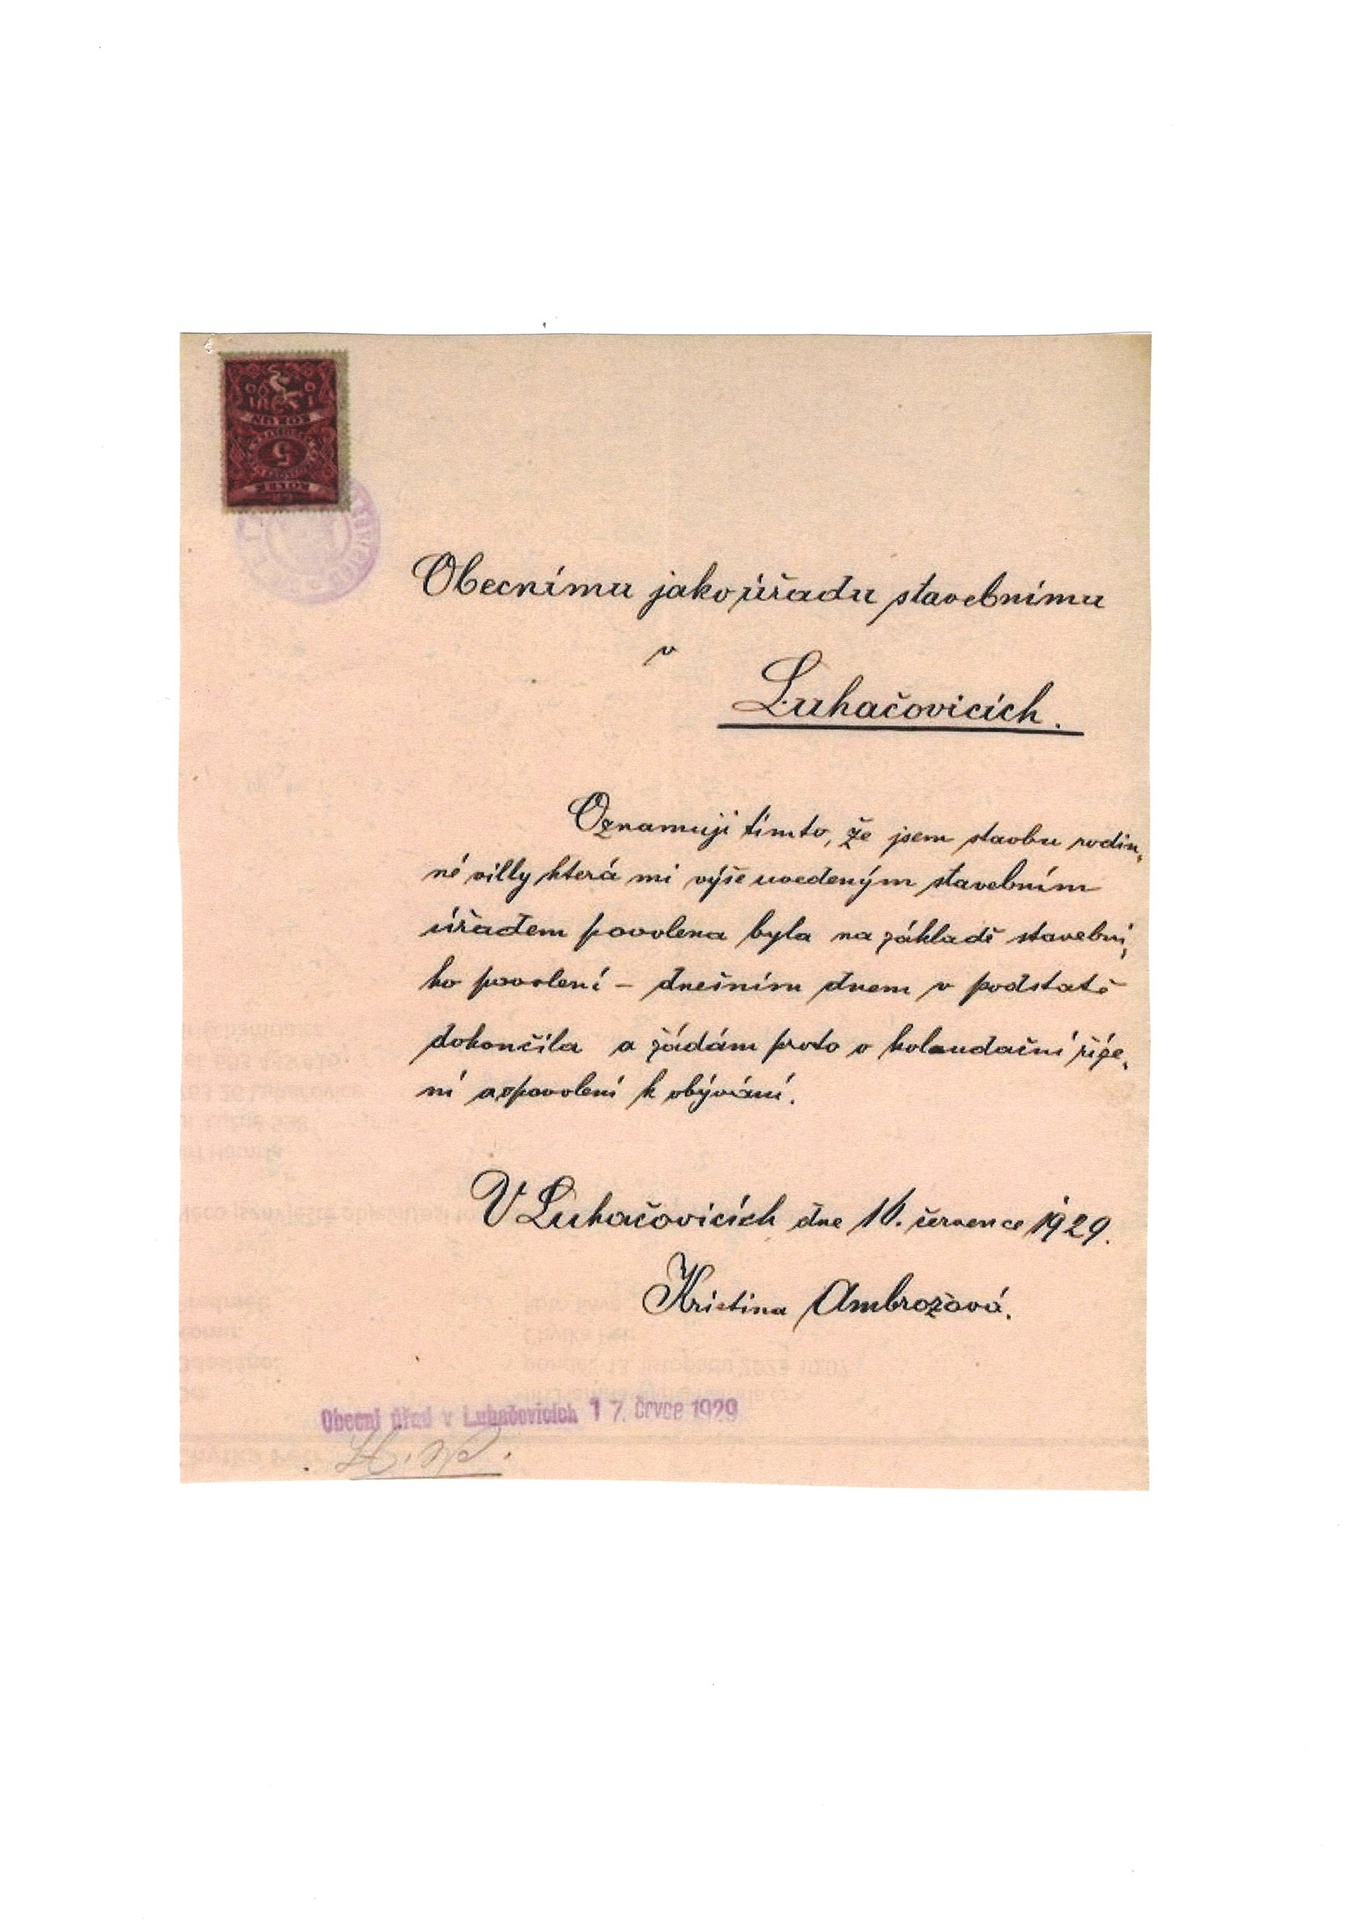 KORUN
5
KOLEK
Obecnímu jako úřadu stavebnímu
v
Luhačovicích.
Oznamuji tímto, že jsem stavbu rodin,
né villy která mi výše uvedeným stavebním
úřadem povolena byla na základě stavební,
ho povolení – dnešním dnem v podstatě
dokončila a žádám proto o kolaudační říze,
ní a povolení k obývání.
V Luhačovicích dne 16. července 1929.
Kristina Ambrožová.
Obecní úřad v Luhačovicích 17. čvce 1929